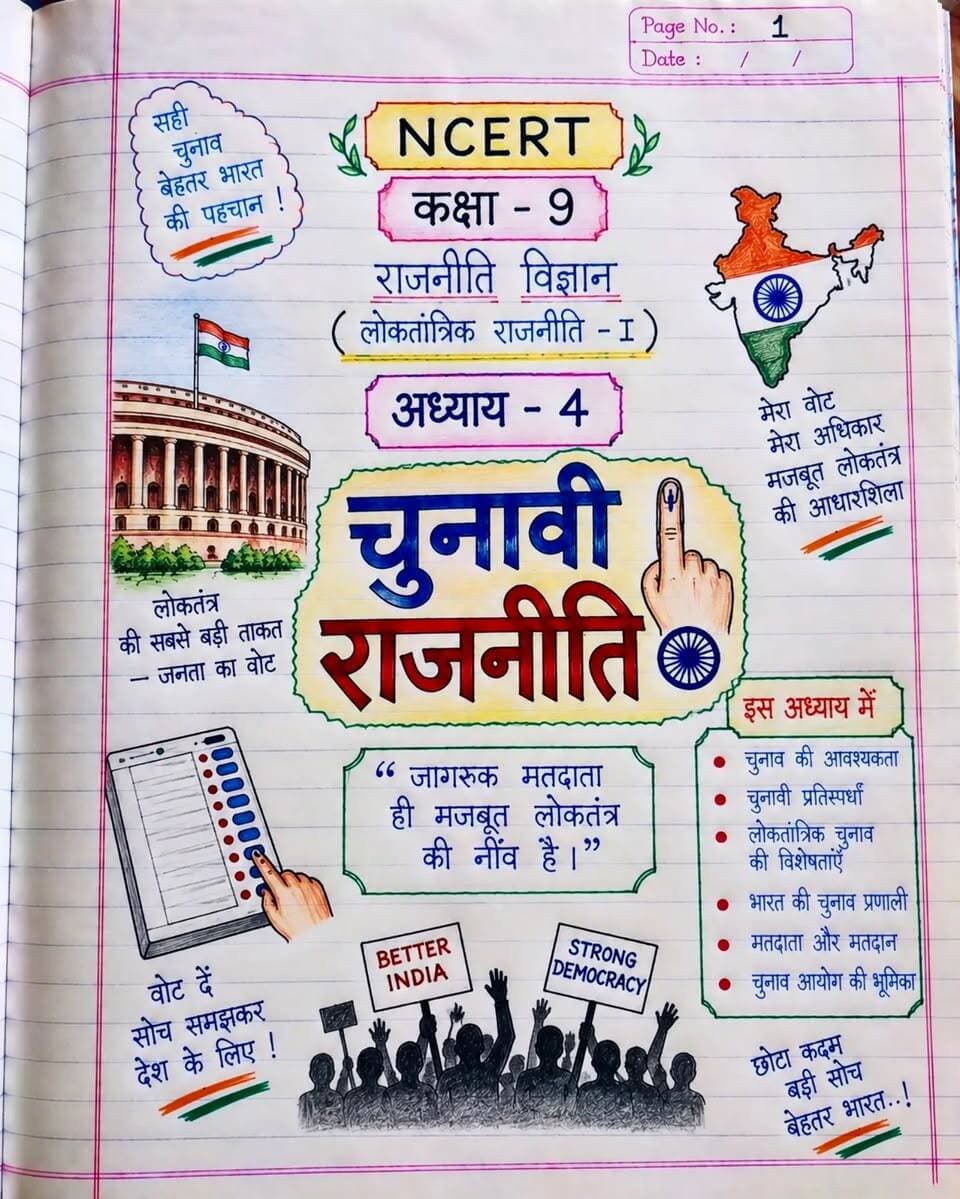 Page No.: 1
Date : / /
सही
चुनांव
बेहतर भारत
की पहचान !
NCERT
कक्षा - 9
राजनीति विज्ञान
(लोकतांत्रिक राजनीति - I)
अध्याय - 4
मेरा वोट
मेरा अधिकार
मजबूत लोकतंत्र
की आधारशिला
चुनावी
राजनीति
लोकतंत्र
की सबसे बड़ी ताकत
— जनता का वोट
इस अध्याय में
• चुनाव की आवश्यकता
• चुनावी प्रतिस्पर्धा
• लोकतांत्रिक चुनाव
की विशेषताएँ
• भारत की चुनाव प्रणाली
• मतदाता और मतदान
• चुनाव आयोग की भूमिका
“ जागरुक मतदाता
ही मजबूत लोकतंत्र
की नींव है।”
BETTER
INDIA
STRONG
DEMOCRACY
वोट दें
सोच समझकर
देश के लिए !
छोटा कदम
बड़ी सोच
बेहतर भारत..!